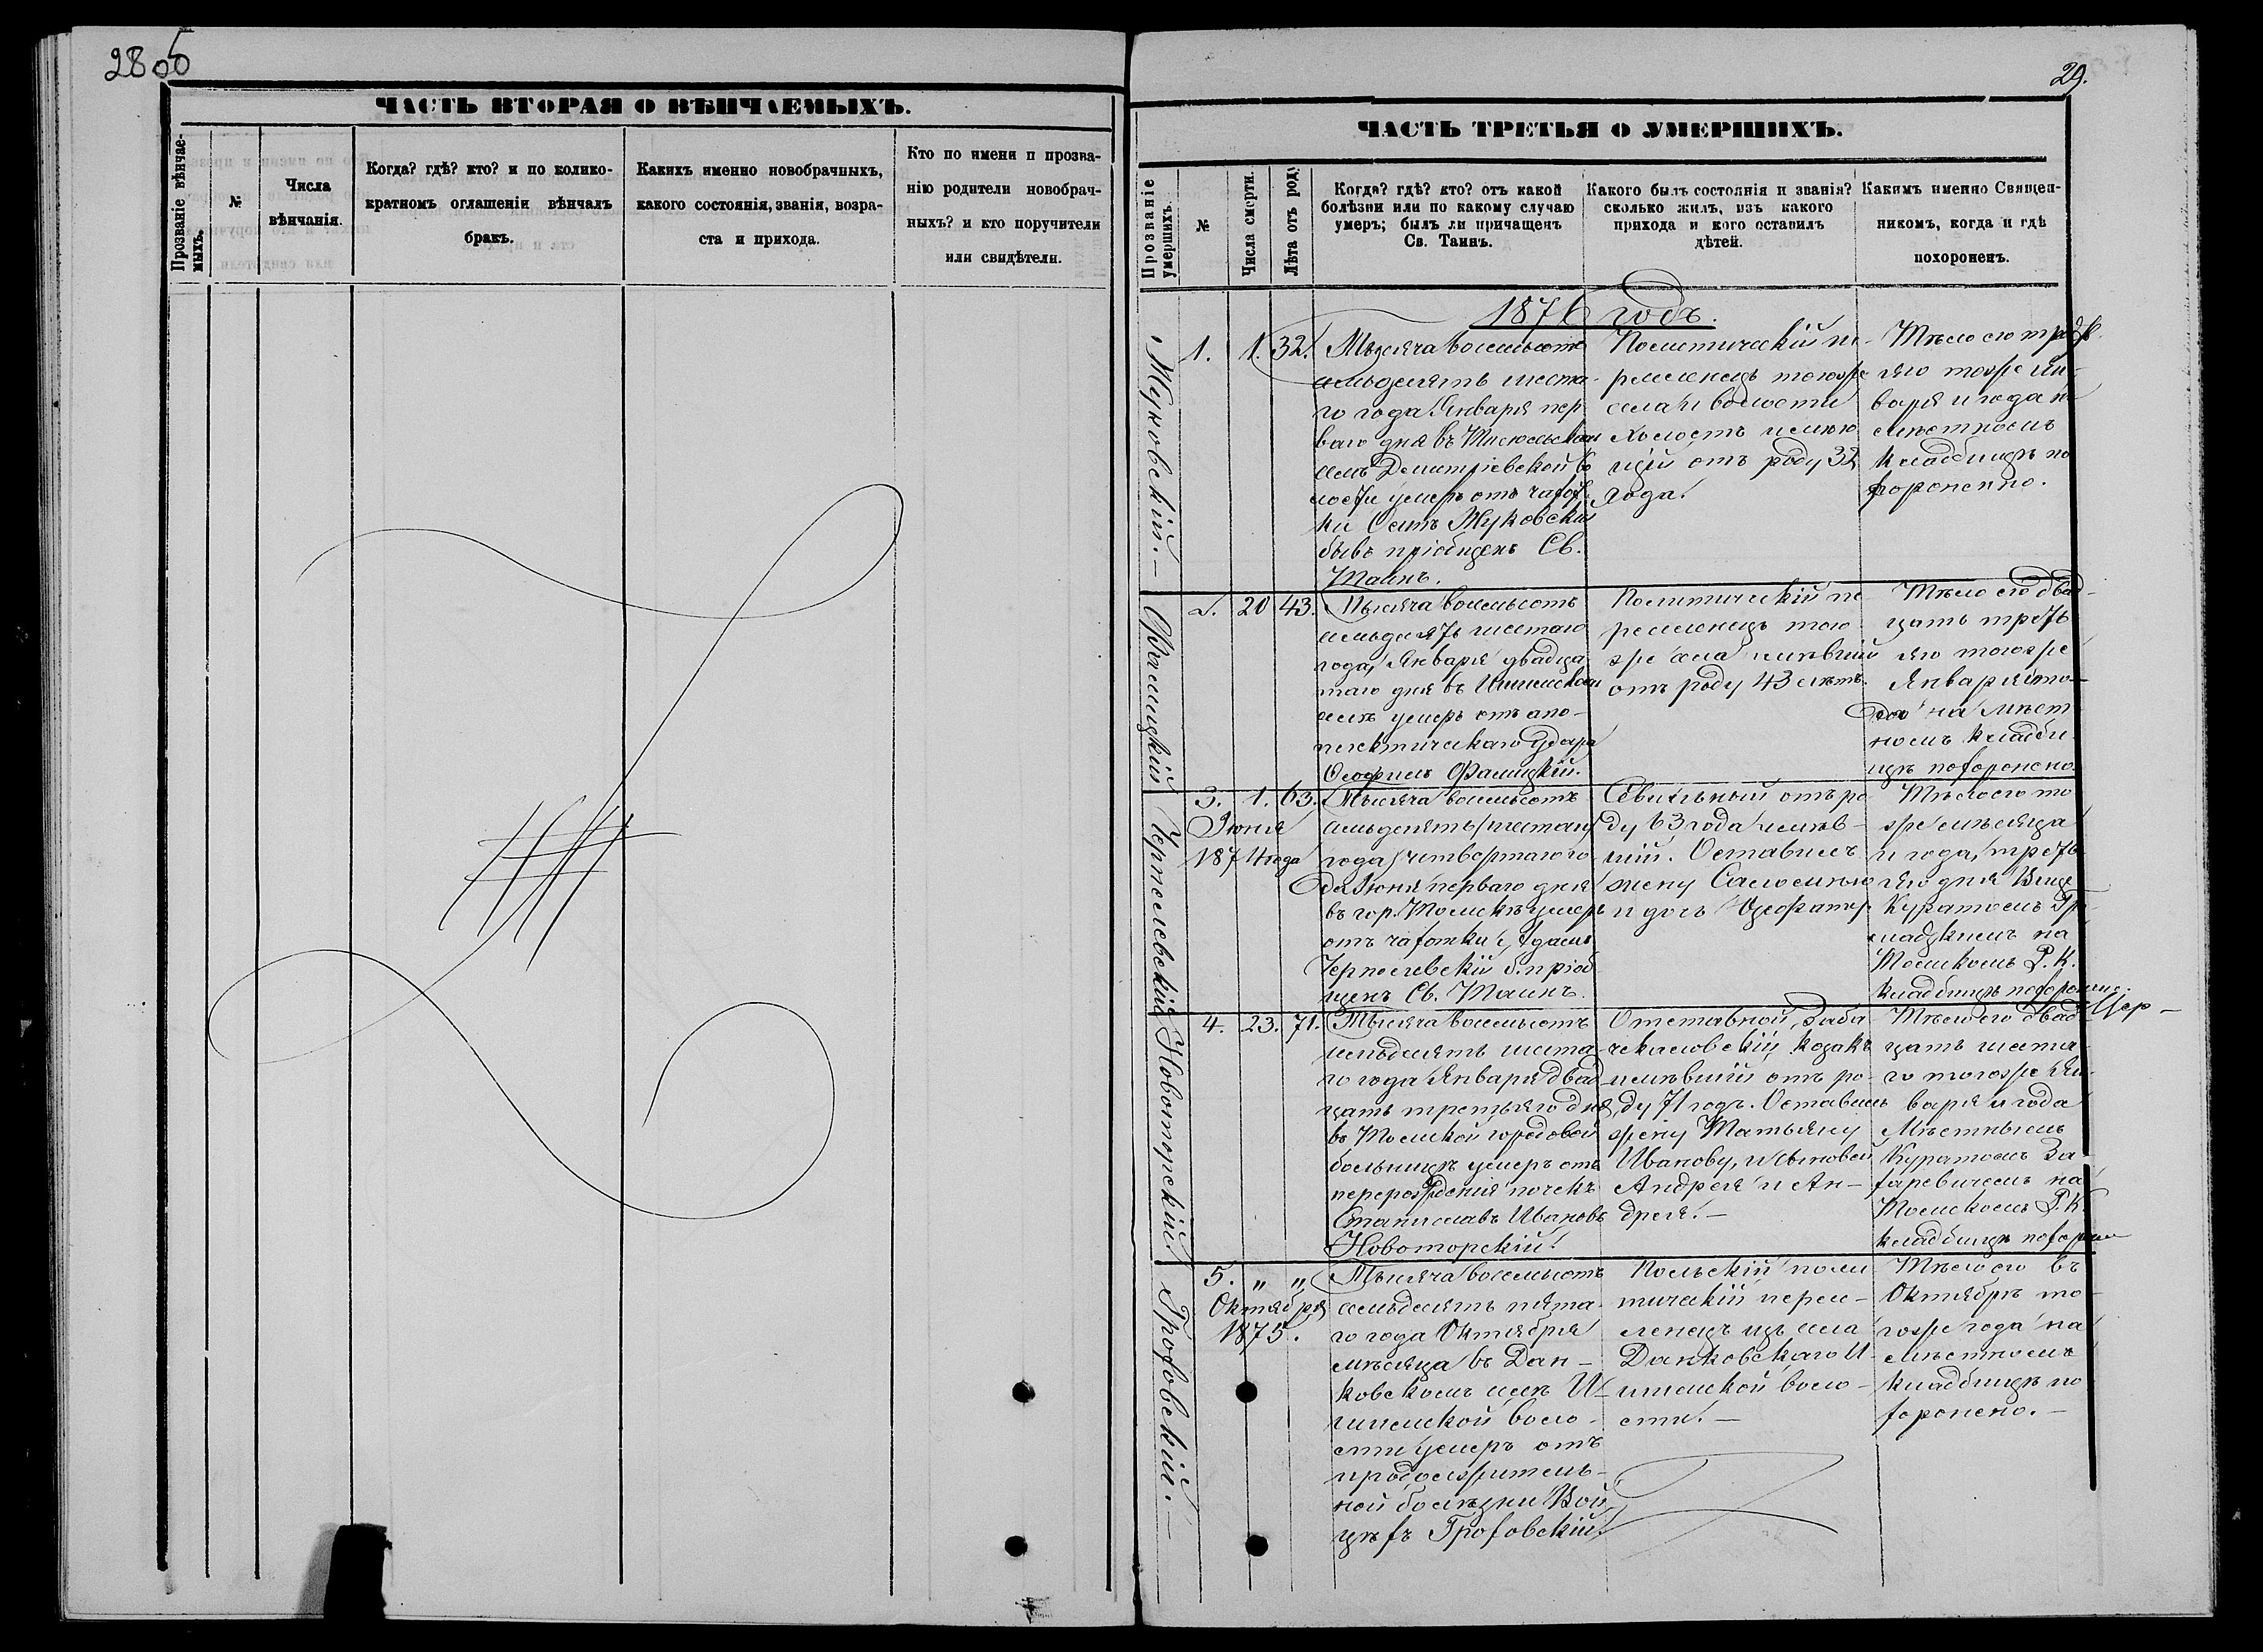 28об
ЧАСТЬ ВТОРАЯ О ВѢНЧАЕМЫХЪ.
Прозваніе вѣнчае-
мыхъ.
№
Числа
вѣнчанія.
Когда? гдѣ? кто? и по колико-
кратномъ оглашеніи вѣнчалъ
бракъ.
Какихъ именно новобрачныхъ,
какого состоянія, званія, возра-
ста и прихода.
Кто по имени и прозва-
нію родители новобрач-
ныхъ? и кто поручители
или свидѣтели.
29.
ЧАСТЬ ТРЕТЬЯ О УМЕРШИХЪ.
Прозваніе
умершихъ.
№
Числа смерти.
Лѣта отъ роду
Когда? гдѣ? кто? отъ какой
болѣзни или по какому случаю
умеръ; былъ ли причащенъ
Св. Таинъ.
Какого былъ состоянія и званія?
сколько жилъ, изъ какого
прихода и кого оставилъ
дѣтей.
Какимъ именно Священ-
никомъ, когда и гдѣ
похороненъ.
1876 годъ.
Жуковскій.—
1.
1.
32.
Тысяча восемьсотъ
семьдесятъ шеста-
го года Января пер
ваго дня въ
селѣ Дмитріевской во
лости умеръ отъ чахот
ки Осипъ Жуковскій
бывъ пріобщенъ Св.
Таинъ.
Политическій пе-
реселенецъ тогоже
села и волости
холостъ имѣю
щій отъ роду 32
года.
Тѣло его треть
яго тогоже Ян-
варя и года на
мѣстномъ
кладбищѣ по
хоронено.
Фрамицкій
2.
20
43.
Тысяча восемьсотъ
семьдесятъ шестаго
года, Января двадца
таго дня въ Ишимскомъ
селѣ умеръ отъ апо-
плектическаго удара
Фрамицкій.
Политическій пе-
реселенецъ того
же села имѣвшій
отъ роду 43 лѣтъ.
Тѣло его двад-
цать треть
яго тогоже
Января и го-
да на мѣст
номъ кладби
щѣ похоронено.
Чернолевскій
3.
1.
63.
Іюня
1874 года
Тысяча восемьсотъ
семьдесятъ (шестаго
года) четвертаго го
да Іюня перваго дня
въ гор. Томскѣ умеръ
отъ чахотки Адамъ
Чернолевскій б. пріоб
щенъ Св. Таинъ.
отъ ро
ду 63 года имѣв-
шій. Оставилъ
жену Саломею
и дочь
Тѣло его то
же мѣсяца
и года, треть
яго дня Вице
Куратомъ Гри
на
Томскомъ Р. К.
кладбищѣ похоронено.
Новоторскій.
4.
23.
71.
Тысяча восемьсотъ
семьдесятъ шеста-
го года Января двад
цать третьяго дня
въ Томской городовой
больницѣ умеръ отъ
перерожденія почекъ
Станиславъ Ивановъ
Новоторскій.
Отставной Заба
козакъ
имѣвшій отъ ро-
ду 71 годъ. Оставилъ
жену Татьяну
Иванову, и сыновей
Андрея и Ан-
дрея.—
Тѣло его двад
цать шеста
го тогоже Ян-
варя и года
Мѣстнымъ
Куратомъ За
харевичемъ на
Томскомъ Р. К.
кладбищѣ похорон
Гроховскій.—
5.
„ „
Октября
1875.
Тысяча восемьсотъ
семьдесятъ пята-
го года Октября
мѣсяца въ Дан-
ковскомъ селѣ И-
шимской воло-
сти умеръ отъ
продолжитель-
ной болѣзни Вой
цѣхъ Гроховскій.
Польскій поли
тическій пересе-
ленецъ изъ села
Данковскаго И-
шимской воло-
сти.—
Тѣло его въ
Октябрѣ то-
гоже года на
мѣстномъ
кладбищѣ по
хоронено.—